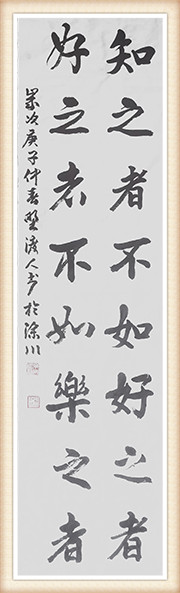 知之者不如好之者
好之者不如樂之者
歲次庚子仲春野渡人書於深川